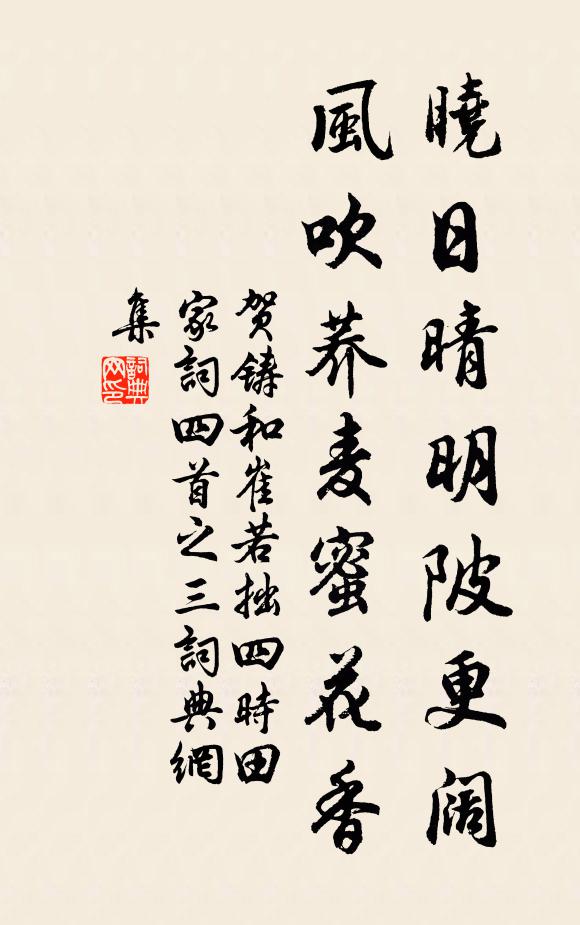 曉日晴明陂更闊
風吹荞麦蜜花香
贺鑄和崔若拙四時田
家詞四首之三詞典網
集
詞典
网印